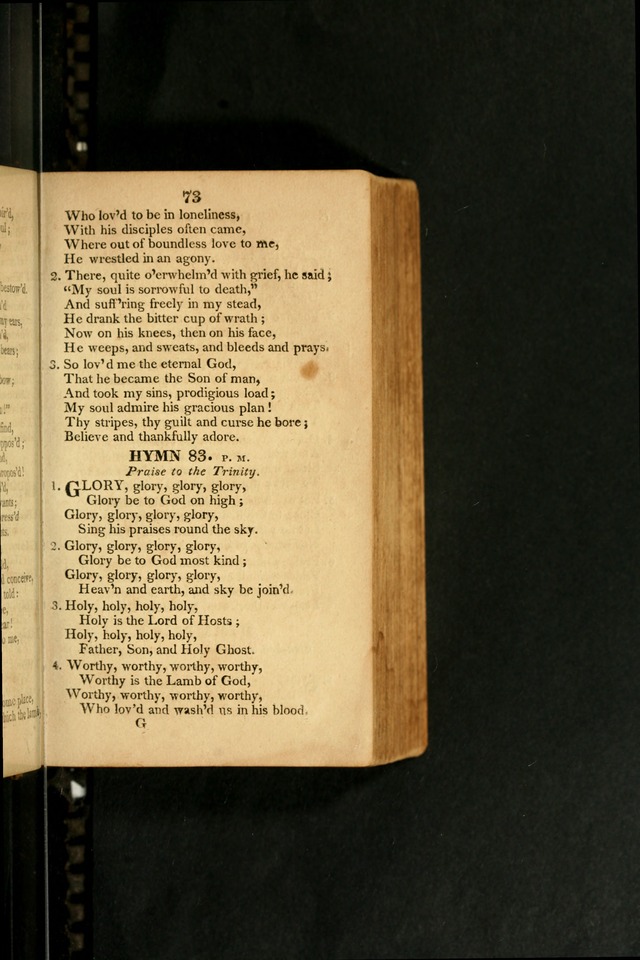 73
Who lov'd to be in loneliness,
With his disciples often came,
Where out of boundless love to me,
He wrestled in an agony.
2. There, quite o'erwhelm'd with grief, he said;
"My soul is sorrowful to death,"
And suff'ring freely in my stead,
He drank the bitter cup of wrath;
Now on his knees, then on his face,
He weeps, and sweats, and bleeds and prays.
3. So lov'd me the eternal God,
That he became the Son of man,
And took my sins, prodigious load;
My soul admire his gracious plan!
Thy stripes, thy guilt and curse he bore;
Believe and thankfully adore.
HYMN 83. P. M.
Praise to the Trinity.
1. GLORY, glory, glory, glory,
Glory be to God on high;
Glory, glory, glory, glory,
Sing his praises round the sky.
2. Glory, glory, glory, glory,
Glory be to God most kind;
Glory, glory, glory, glory,
Heav'n and earth, and sky be join'd.
3. Holy, holy, holy, holy,
Holy is the Lord of Hosts;
Holy, holy, holy, holy,
Father, Son, and Holy Ghost.
4. Worthy, worthy, worthy, worthy,
Worthy is the Lamb of God,
Worthy, worthy, worthy, worthy,
Who lov'd and wash'd us in his blood.
G